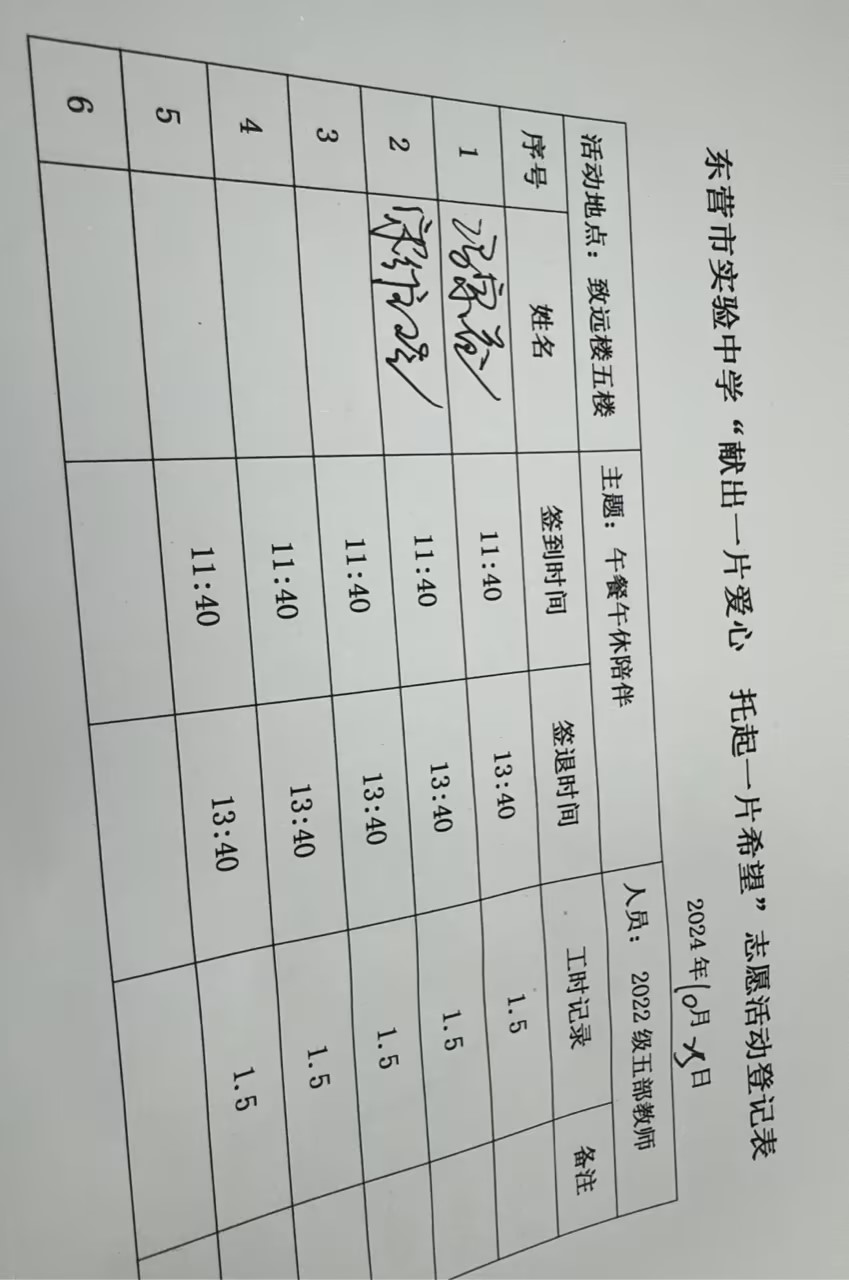 东营市实验中学“献出一片爱心 托起一片希望”志愿活动登记表
2024年10月 日
活动地点：致远楼五楼 主题：午餐午休陪伴 人员：2022级五部教师
序号 姓名 签到时间 签退时间 工时记录 备注
1 11:40 13:40 1.5
2 11:40 13:40 1.5
3 11:40 13:40 1.5
4 11:40 13:40 1.5
5 11:40 13:40 1.5
6